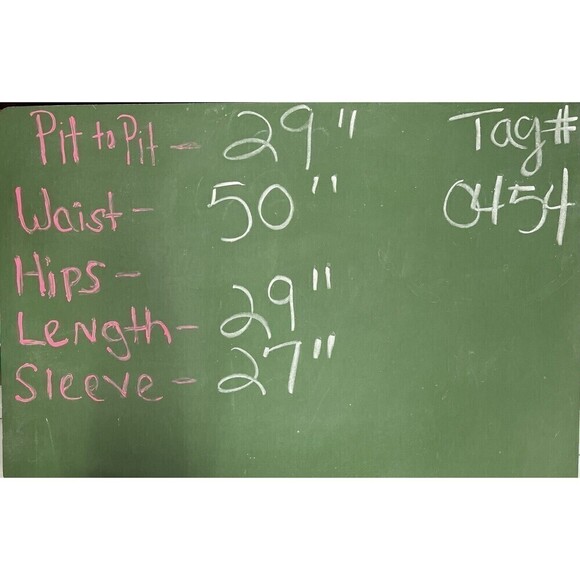 Pit to Pit - 29" Tag#
Waist - 50" 0454
Hips -
Length - 29"
Sleeve - 27"